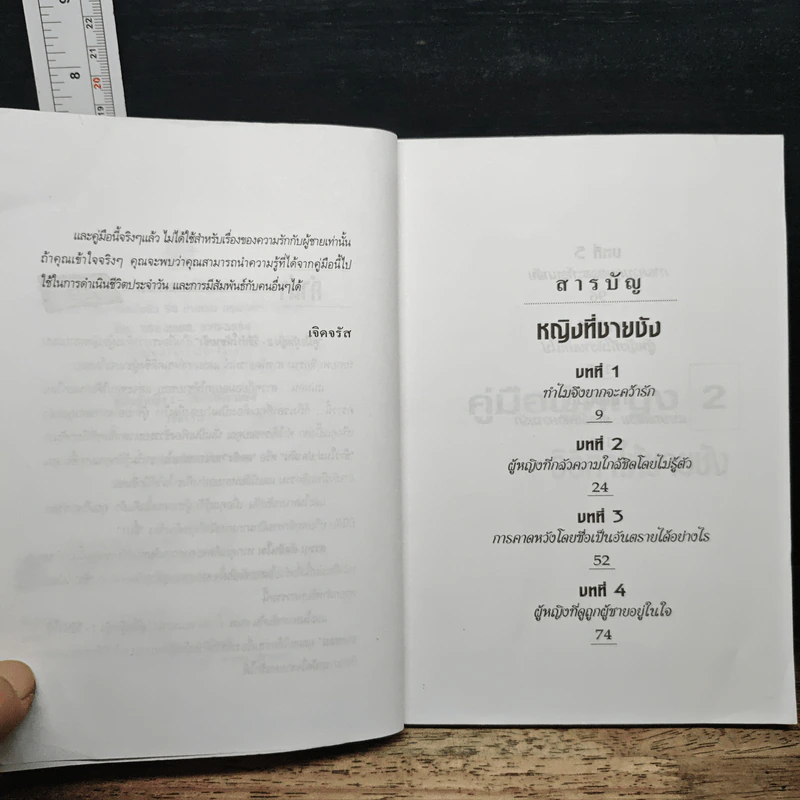 และคู่มือนี้จริงๆแล้ว ไม่ได้ใช้สำหรับเรื่องของความรักกับผู้ชายเท่านั้น
ถ้าคุณเข้าใจจริงๆ คุณจะพบว่าคุณสามารถนำความรู้ที่ได้จากคู่มือนี้ไป
ใช้ในการดำเนินชีวิตประจำวัน และการมีสัมพันธ์กับคนอื่นๆได้
เจิดจรัส
สารบัญ
หญิงที่ชายชัง
บทที่ 1
ทำไมจึงยากจะคว้ารัก
9
บทที่ 2
ผู้หญิงที่กลัวความใกล้ชิดโดยไม่รู้ตัว
24
บทที่ 3
การคาดหวังโดยซื่อเป็นอันตรายได้อย่างไร
52
บทที่ 4
ผู้หญิงที่ดูถูกผู้ชายอยู่ในใจ
74
8
22
21
20
19